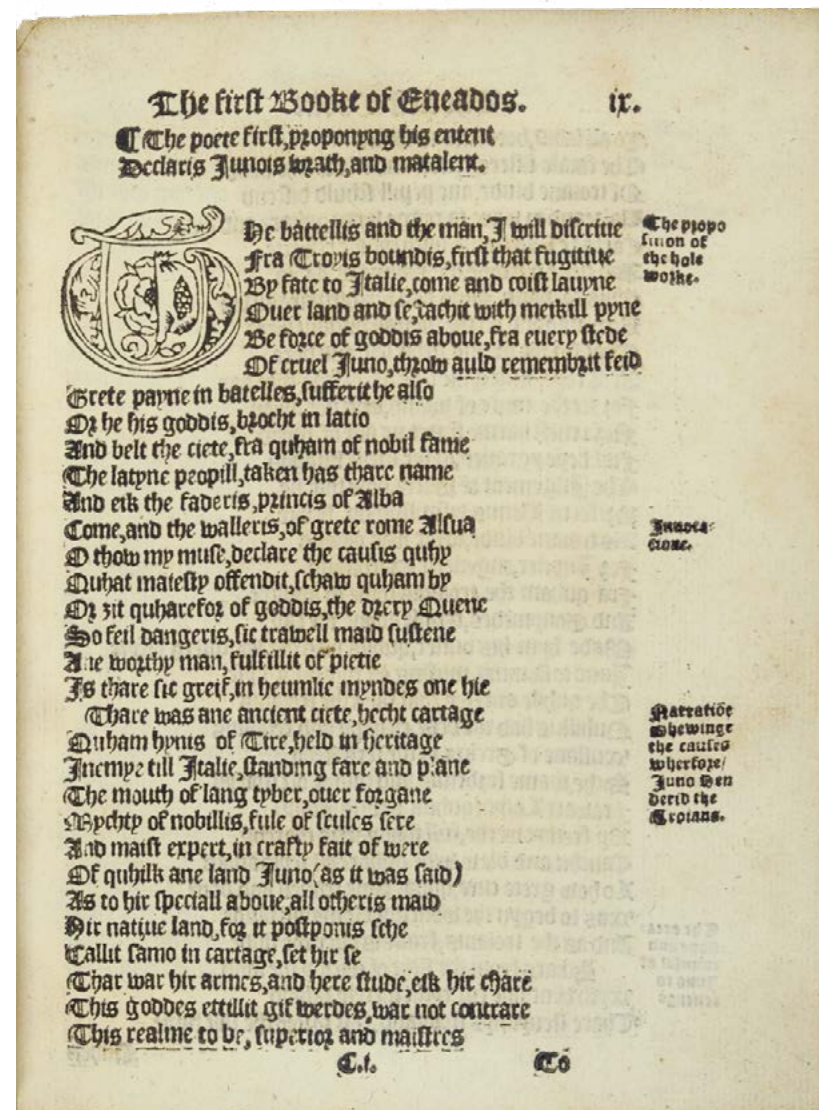 The first Booke of Eneados. ix.
¶ The poete first, proponyng his entent
Declaris Junois wrath, and matalent.
THe battellis and the man, I will discriue
Fra Troyis boundis, first that fugitiue
By fate to Italie, come and coist lauyne
Ouer land and se, cachit with meikill pyne
Be force of goddis aboue, fra euery stede
Of cruel Juno, throw auld remembrit feid
Grete payne in batelles, sufferit he also
Or he his goddis, brocht in latio
And belt the ciete, fra quham of nobil fame
The latyne peopill, taken has thare name
And eik the faderis, princis of Alba
Come, and the walleris, of grete rome Alsua
O thow my muse, declare the causis quhy
Quhat maiesty offendit, schaw quham by
Or ȝit quharefor of goddis, the drery Quene
So feil dangeris, sic trawell maid sustene
Ane worthy man, fulfillit of pietie
Is thare sic greif, in heuinlie myndes one hie
Thare was ane ancient ciete, hecht cartage
Quham hynis of Tire, held in heritage
Inemye till Italie, standing fare and plane
The mouth of lang tyber, ouer forgane
Mychty of nobillis, fule of scules sere
And maist expert, in crafty fait of were
Of quhilk ane land Juno (as it was said)
As to hir speciall aboue, all otheris maid
Hir natiue land, for it postponis sche
Callit samo in cartage, set hir se
Thar war hir armes, and here stude, eik hir chare
This goddes ettillit gif werdes, war not contrare
This realme to be, superior and maistres
C.i. To
The propo
sition of
the hole
worke.
Inuoca-
cione.
Narratiōe
shewinge
the causes
wherfore/
Juno
derid the
Troians.